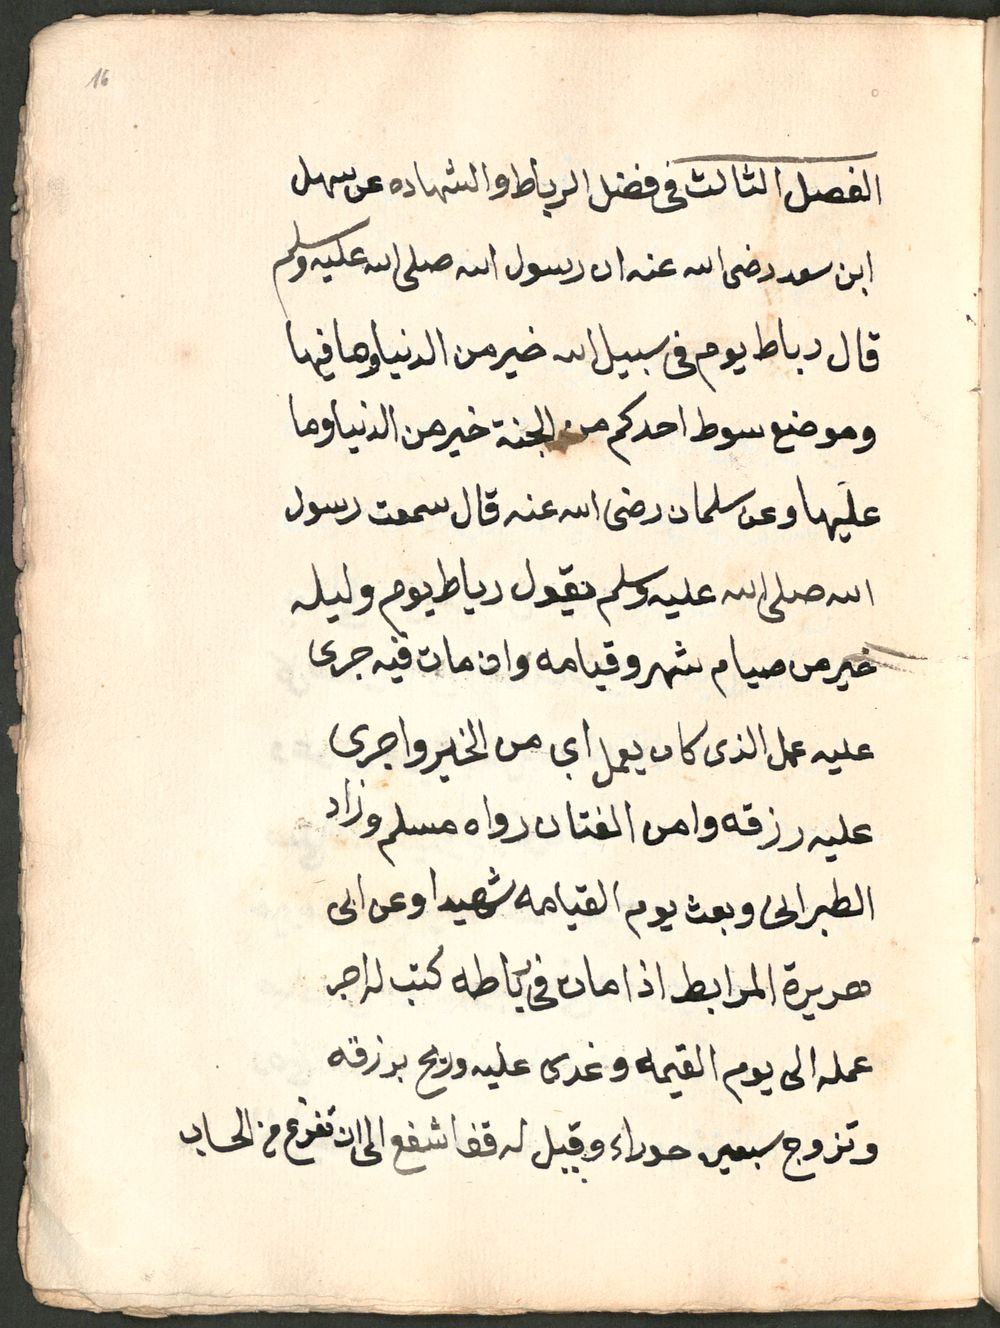 16
الفصل الثالث فى فضل الرباط والشهاده عن سهل
ابن سعد رضى الله عنه ان رسول الله صلى الله عليه وسلم
قال رباط يوم فى سبيل الله خير من الدنيا وما فيها
وموضع سوط احدكم من الجنة خير من الدنيا وما
عليها وعن سلمان رضى الله عنه قال سمعت رسول
الله صلى الله عليه وسلم يقول رباط يوم وليله
خير من صيام شهر وقيامه وان مات فيه جرى
عليه عمل الذى كان يعمل اى من الخير واجرى
عليه رزقه وامن الفتان رواه مسلم وزاد
الطبرانى وبعث يوم القيامه شهيدا وعن ابى
هريرة المرابط اذا مات فى رباطه كتب له اجر
عمله الى يوم القيمه وغدى عليه وريح برزقه
وتزوج سبعين حوراء وقيل له قف اشفع الى ان تفرغ من الحساب